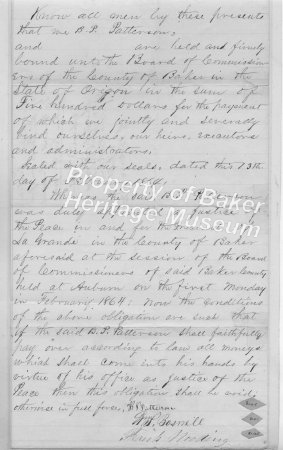 Know all men by these presents
that we B. P. Patterson,
and are held and firmly
bound unto the Board of Commission
ers of the County of Baker in the
State of Oregon in the sum of
Five hundred Dollars for the payment
of which we jointly and severally
bind ourselves, our heirs, executors
and administrators,
Sealed with our seals, dated this 13th
day of
Whereas the said B. P. Patterson
was duly appointed Justice of
the Peace in and for the
La Grande in the County of Baker
aforesaid at the session of the Board
of Commissioners of said Baker County
held at Auburn on the first Monday
in February 1864: Now the conditions
of the above obligation are such that
if the said B. P. Patterson shall faithfully
pay over according to law all moneys
which shall come into his hands by
virtue of his office as justice of the
Peace then this obligation shall be void;
otherwise in full force, B P Patterson
Property of Baker
Heritage Museum